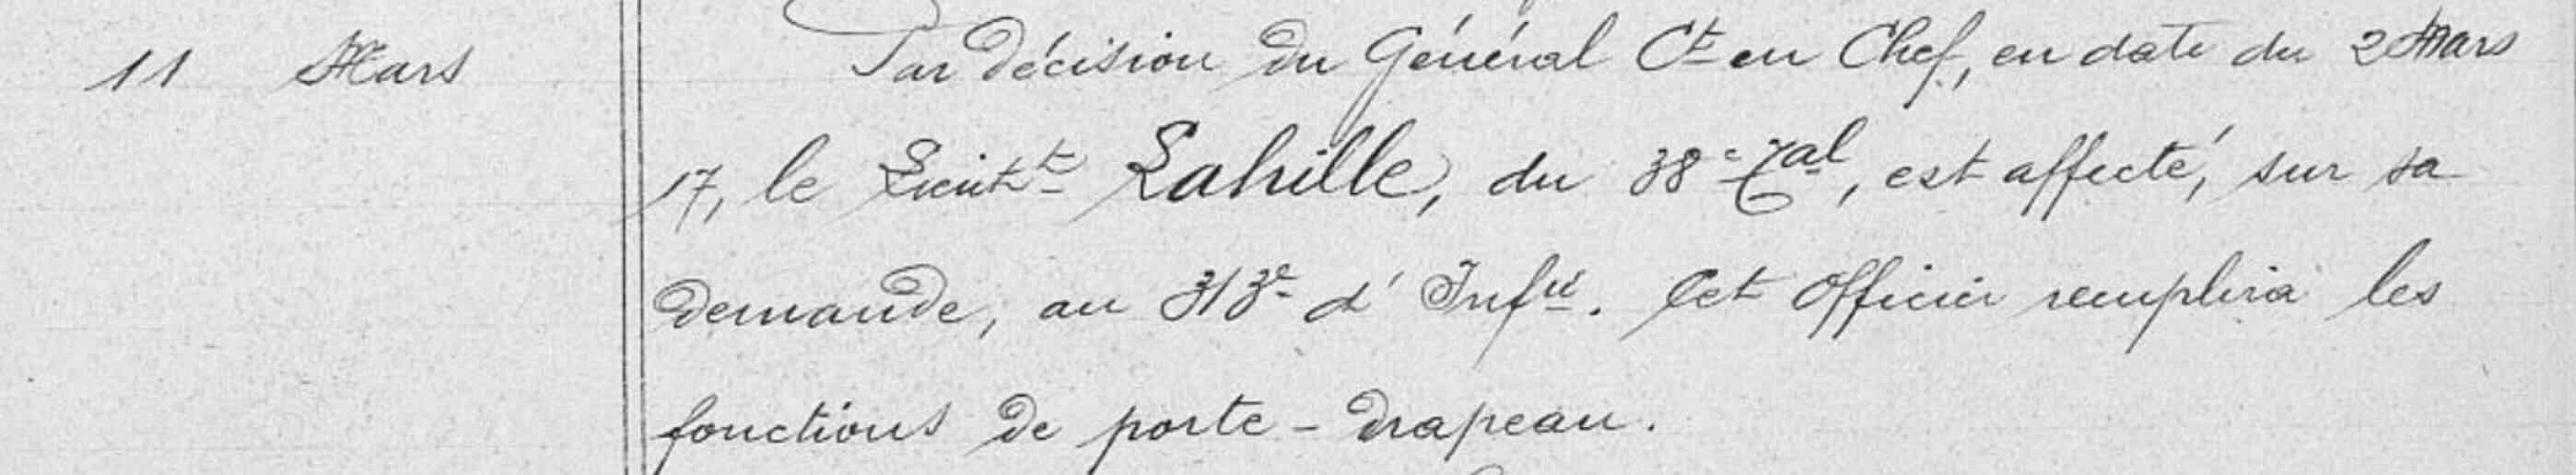 11 Mars
Par décision du Général Ct en Chef, en date du 2 Mars
17, le Lieutt Lahille, du 38e Tal, est affecté, sur sa
demande, au 313e d'Infie. Cet Officier remplira les
fonctions de porte-drapeau.